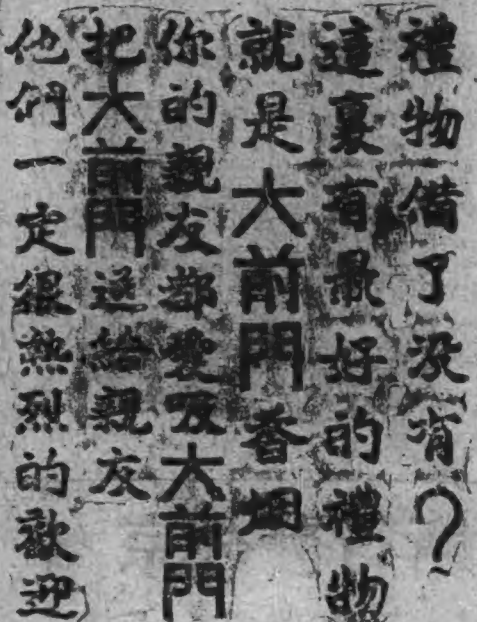 禮物備了沒有？
這裏有最好的禮物
就是大前門香烟
你的親友都愛吸大前門
把大前門送給親友
他們一定很熱烈的歡迎